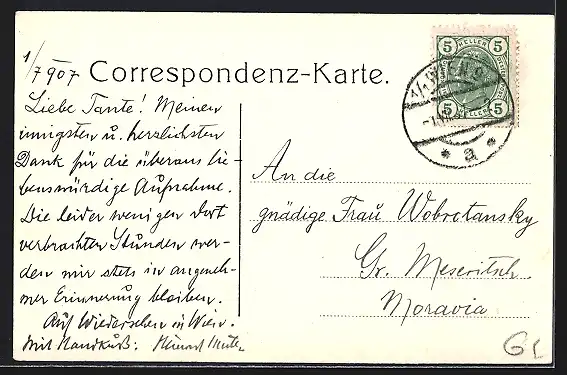 1/7 907
Correspondenz-Karte.
Liebe Tante! Meinen
innigsten u. herzlichsten
Dank für die überaus lie-
benswürdige Aufnahme.
Die leider wenigen dort
verbrachten Stunden wer-
den mir stets in angeneh-
mer Erinnerung bleiben.
Auf Wiedersehen in Wien.
Mit Handkuß:
An die
gnädige Frau Wobrotansky
Gr. Meseritsch
Moravia
5 HELLER 5
5 HELLER 5
WIEN
* a *
GL